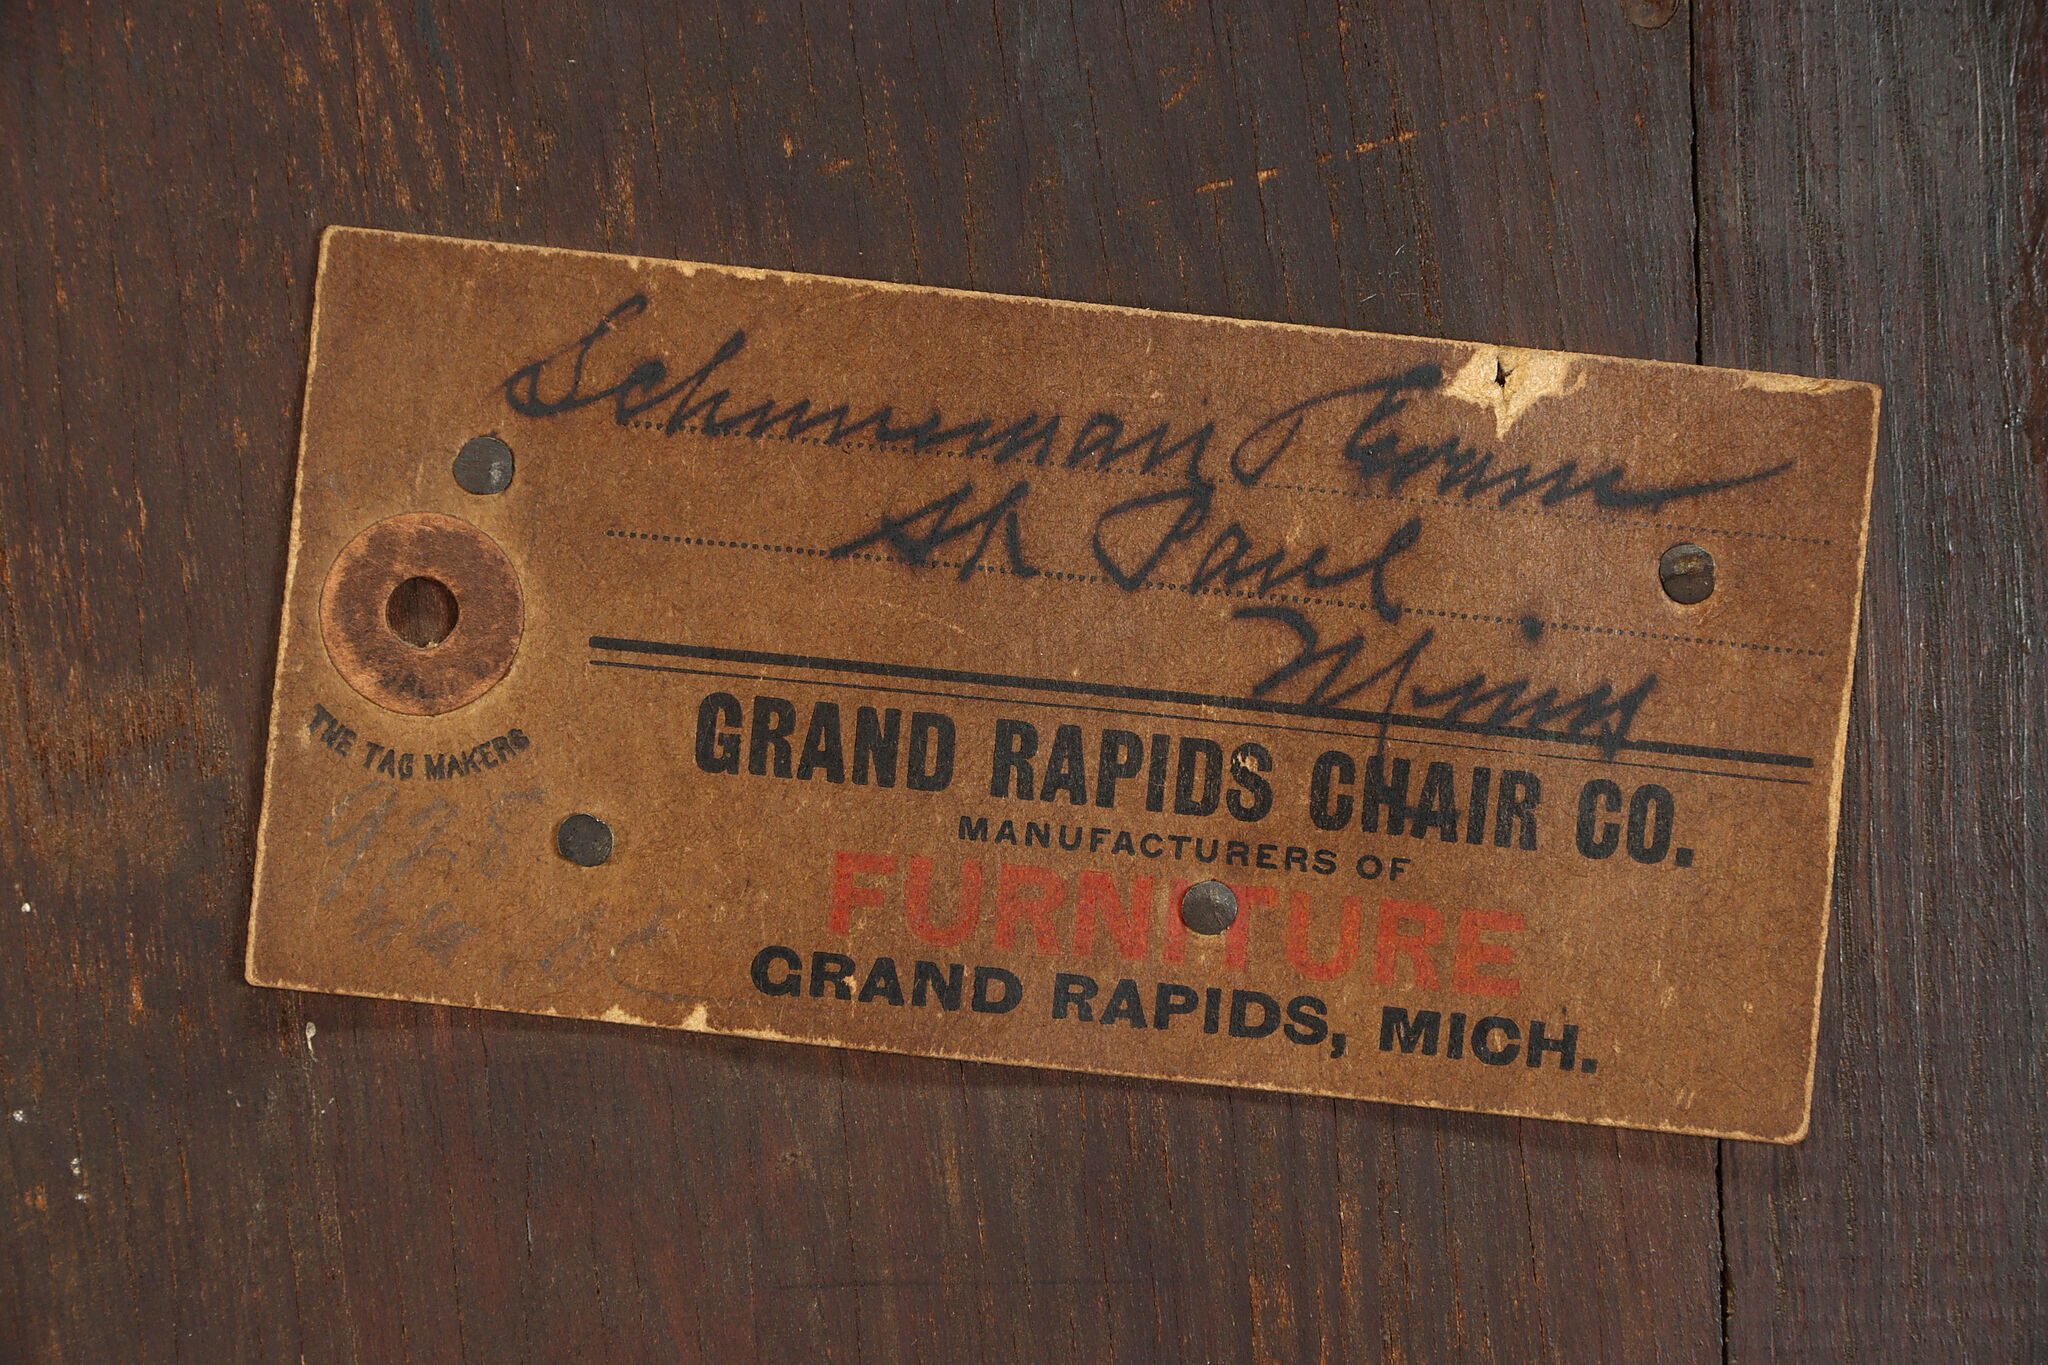 Schuneman & Evans
St Paul
Minn
THE TAG MAKERS
GRAND RAPIDS CHAIR CO.
MANUFACTURERS OF
FURNITURE
GRAND RAPIDS, MICH.